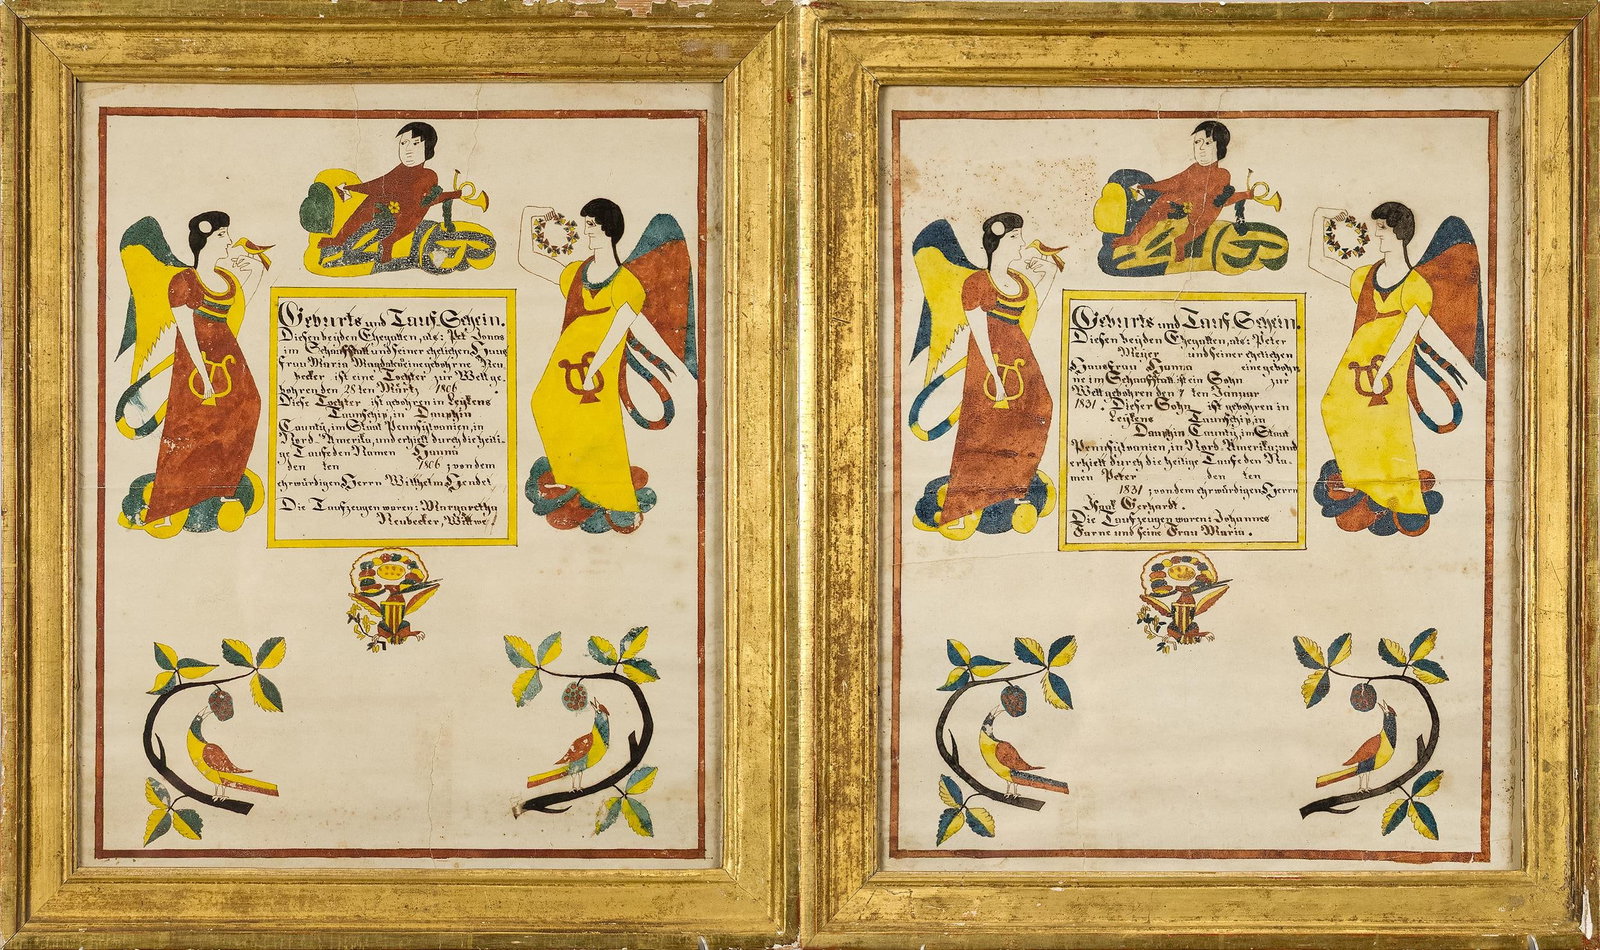 Geburts und Tauf Schein.
Diesen beyden Ehegatten, als: Pet Jonas
im Schaufstall und seiner ehelichen Haus
frau Maria Magdalene eine gebohrne Neu
becker ist eine Tochter zur Welt ge
bohren den 28ten Märtz 1806
Diese Tochter ist gebohren in Leykens
Taunschip, in Dauphin
County, im Staat Pennsylvanien, in
Nord Amerika, und erhielt durch die heili-
ge Taufe den Namen Hanna
den ten 1806; von dem
ehrwürdigen Herrn Wilhelm Hendel
Die Taufzeugen waren: Margaretha
Neubecker, Wittwe
Geburts und Tauf Schein.
Diesen beyden Ehegatten, als: Peter
Meyer und seiner ehelichen
Hausfrau Hanna eine gebohr
ne im Schaufstall ist ein Sohn zur
Welt gebohren den 7 ten Januar
1831. Dieser Sohn ist gebohren in
Leykens Taunschip, in
Dauphin County, im Staat
Pennsylvanien, in Nord Amerika; und
erhielt durch die heilige Taufe den Na-
men Peter den ten
1831; von dem ehrwürdigen Herrn
Isaak Gerhardt.
Die Taufzeugen waren: Johannes
Farne und seine Frau Maria.